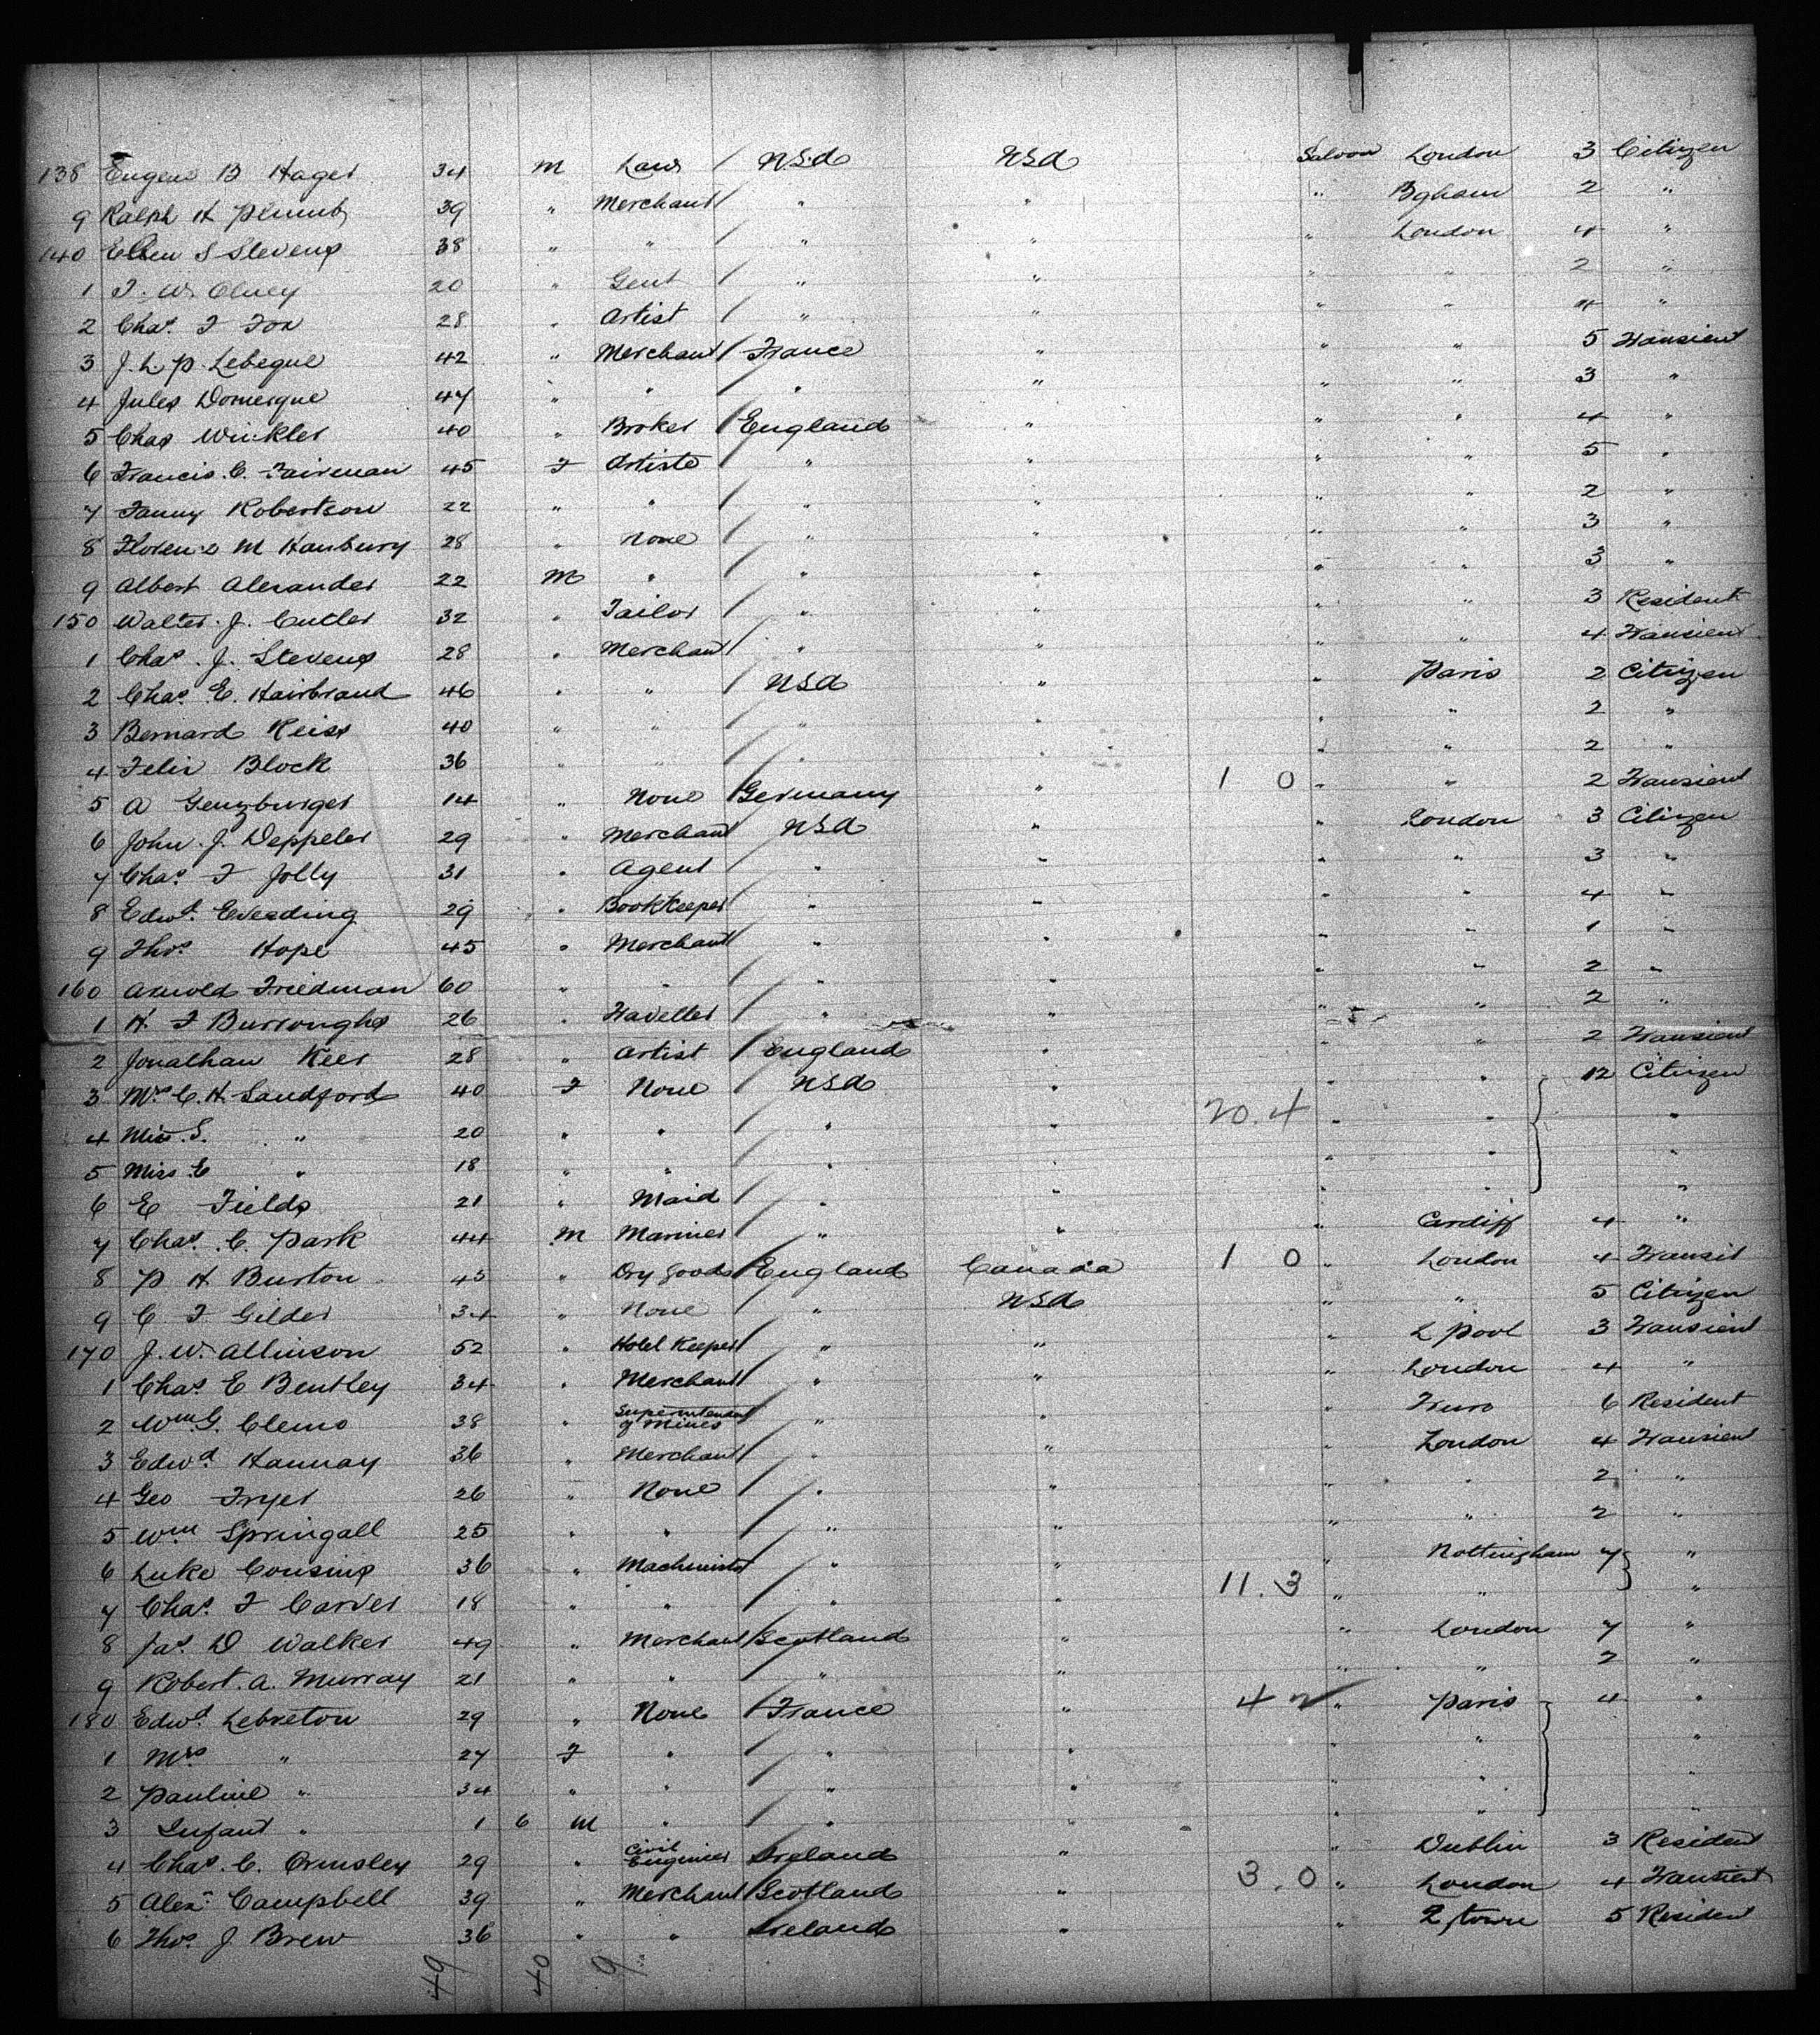 138 Eugene B Hager 34 M Law / U.S.A USA Saloon London 3 Citizen
9 Ralph H Plumb 39 " Merchant / " " " Bgham 2 "
140 Ellen S Stevens 38 " " / " " " London 4 "
1 F. W. Olney 20 " Gent / " " " " 2 "
2 Chas. F Fox 28 " Artist / " " " " 4 "
3 J. L. P. Lebegue 42 " Merchant / France " " " 5 Transient
4 Jules Domergue 47 " " / " " " " 3 "
5 Chas Winkler 40 " Broker / England " " " 4 "
6 Francis. C. Fairman 45 F Artiste / " " " " 5 "
7 Fanny Robertson 22 " " / " " " " 2 "
8 Florence M Hanbury 28 " None / " " " " 3 "
9 Albert Alexander 22 M " / " " " " 3 "
150 Walter. J. Cutler 32 " Tailor / " " " " 3 Resident
1 Chas. J. Stevens 28 " Merchant / " " " " 4 Transient
2 Chas. E. Hairbrand 46 " " / USA " " Paris 2 Citizen
3 Bernard Reiss 40 " " / " " " " 2 "
4 Felix Block 36 " " / " " " " 2 "
5 A Genzburger 14 " None / Germany " 1 0 " " 2 Transient
6 John. J. Deppeler 29 " Merchant / USA " " London 3 Citizen
7 Chas. F Jolly 31 " Agent / " " " " 3 "
8 Edwd. Eveeding 29 " BookKeeper / " " " " 4 "
9 Thos. Hope 45 " Merchant / " " " " 1 "
160 Arnold Friedman 60 " " / " " " " 2 "
1 H. F Burroughs 26 " Traveller / " " " " 2 "
2 Jonathan Keer 28 " Artist / England " " " 2 Transient
3 Mrs C. H. Sandford 40 F None / USA " " " 12 Citizen
4 Miss. S. " 20 " " / " " 20.4 " " "
5 Miss E " 18 " " / " " " " "
6 E Fields 21 " Maid / " " " " "
7 Chas. C. Park 44 M Mariner / " " " Cardiff 4 "
8 P H Burton 45 " Dry Goods / England Canada 1 0 " London 4 Transit
9 C F Gilder 34 " None / " USA " " 5 Citizen
170 J. W. Allinson 52 " Hotel Keeper / " " " L Pool 3 Transient
1 Chas E Bentley 34 " Merchant / " " " London 4 "
2 Wm G. Clemo 38 " Superintendent of Mines / " " " Truro 6 Resident
3 Edwd. Hannay 36 " Merchant / " " " London 4 Transient
4 Geo Fryer 26 " None / " " " " 2 "
5 Wm Springall 25 " " / " " " " 2 "
6 Luke Cousins 36 " Machinist / " " " Nottingham 7 "
7 Chas. F Carver 18 " " / " " 11.3 " " "
8 Jas. D Walker 49 " Merchant / Scotland " " London 7 "
9 Robert. A. Murray 21 " " / " " " " 2 "
180 Edwd. Lebreton 29 " None / France " 4 2 " Paris 4 "
1 Mrs " 27 F " / " " " " "
2 Pauline " 34 " " / " " " " "
3 Infant " 1 6 M " / " " " " "
4 Chas. C. Ormsley 29 " Civil Engineer / Ireland " " Dublin 3 Resident
5 Alexr. Campbell 39 " Merchant / Scotland " 3.0 " London 4 Transient
6 Thos. J Brew 36 " " / Ireland " " Q town 5 Resident
49 40 9